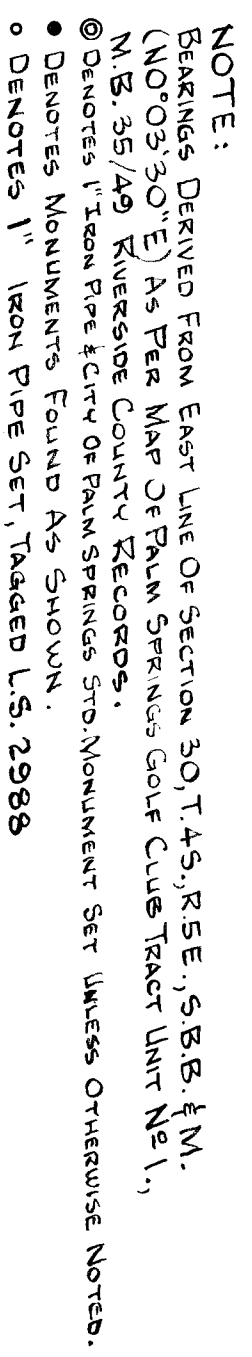 NOTE:
BEARINGS DERIVED FROM EAST LINE OF SECTION 30, T.4S., R.5E., S.B.B. & M.
(N0°03'30"E) AS PER MAP OF PALM SPRINGS GOLF CLUB TRACT UNIT Nº 1.,
M.B. 35/49 RIVERSIDE COUNTY RECORDS.
◎ DENOTES 1" IRON PIPE & CITY OF PALM SPRINGS STD. MONUMENT SET UNLESS OTHERWISE NOTED.
● DENOTES MONUMENTS FOUND AS SHOWN.
○ DENOTES 1" IRON PIPE SET, TAGGED L.S. 2988